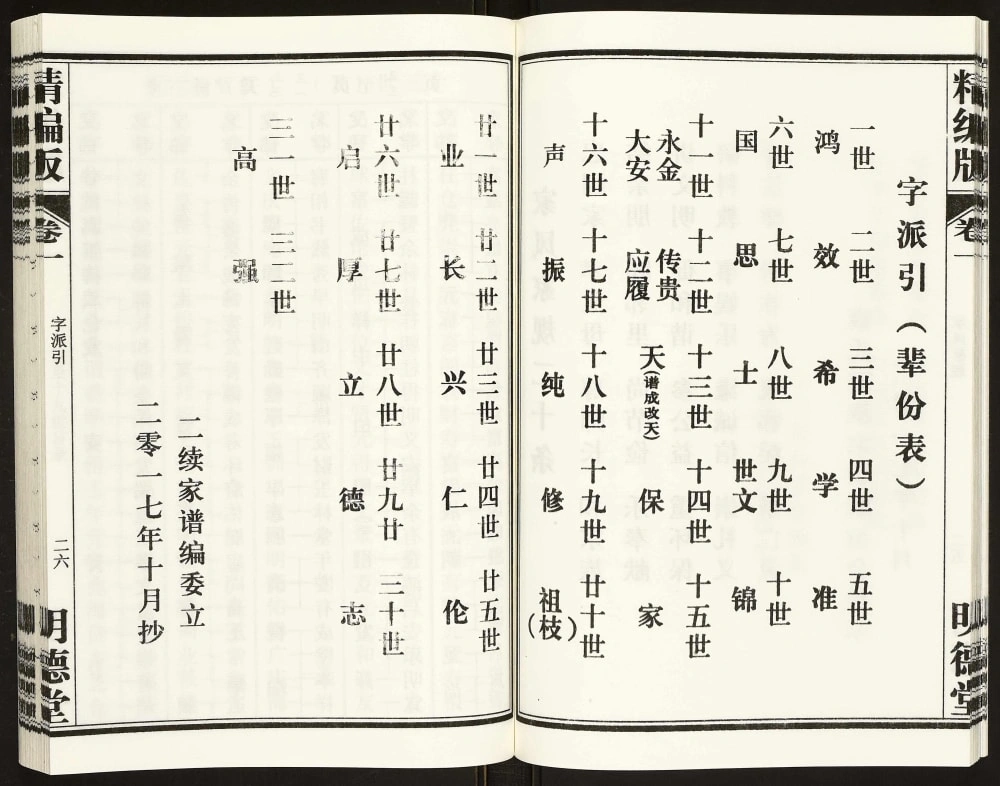 精编版
卷一
明德堂
字派引（辈份表）
一世 二世 三世 四世 五世
鸿 效 希 学 准
六世 七世 八世 九世 十世
国 思 士 世文 锦
十一世 十二世 十三世 十四世 十五世
永金 传贵 天(谱成改天) 保 家
大安 应履
十六世 十七世 十八世 十九世 廿十世
声 振 纯 修 祖(枝)
廿一世 廿二世 廿三世 廿四世 廿五世
业 长 兴 仁 伦
廿六世 廿七世 廿八世 廿九廿 三十世
启 厚 立 德 志
三一世 三二世
高 强
二续家谱编委立
二零 七年十月抄
精编版
卷一
字派引
二六
明德堂